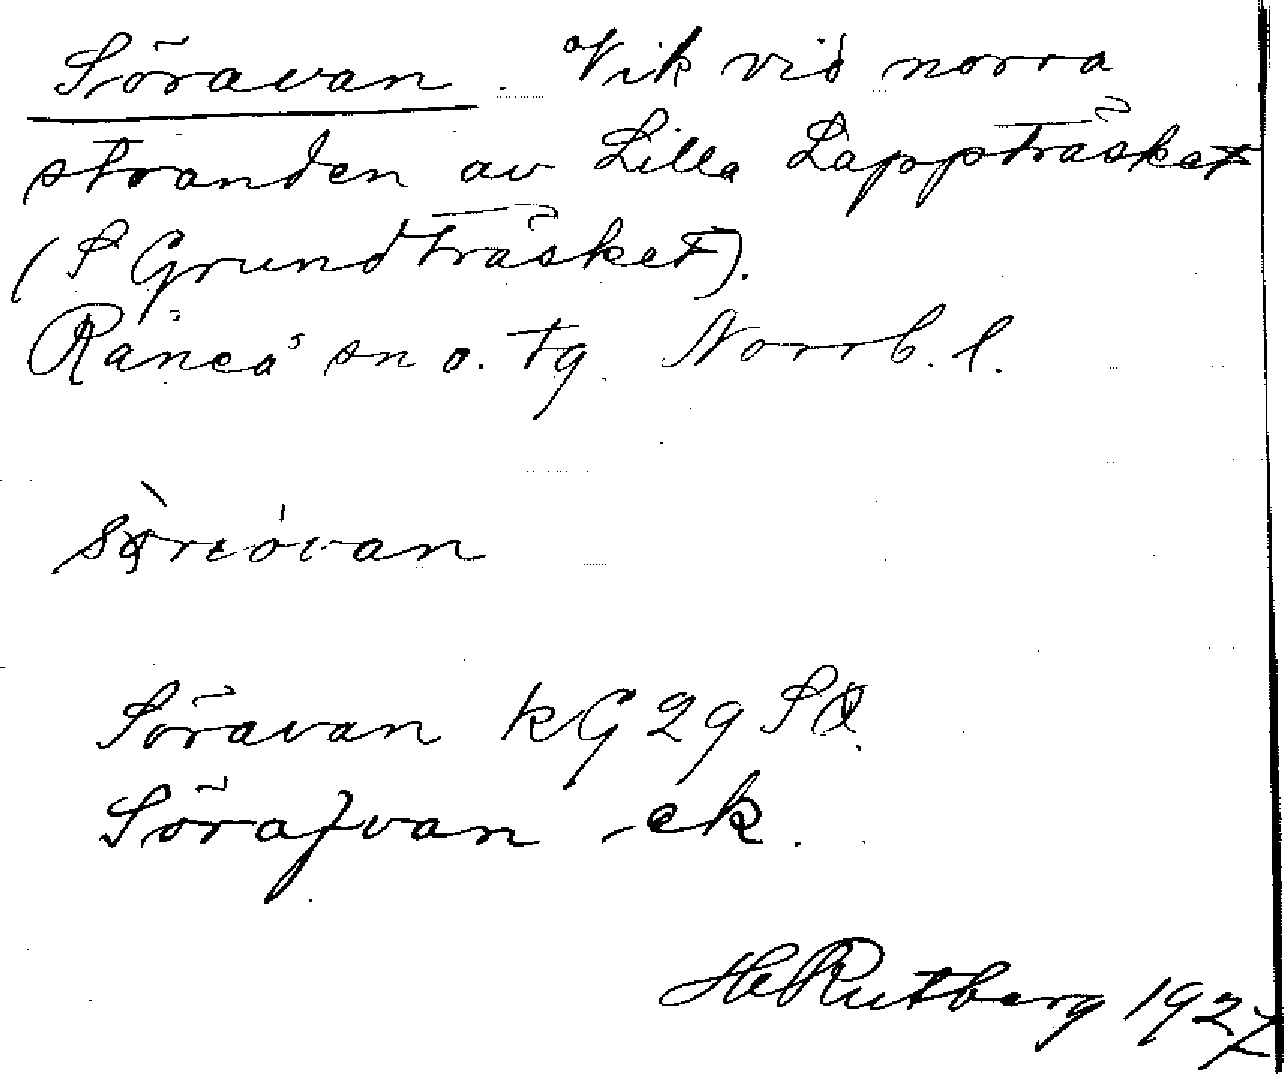 Söravan. Vik vid norra
stranden av Lilla Lappträsket
(S Grundträsket).
Råneå sn o. tg. Norrb. l.
Söravan kG 29 SO.
Sörafvan ek.
HRutberg 1927